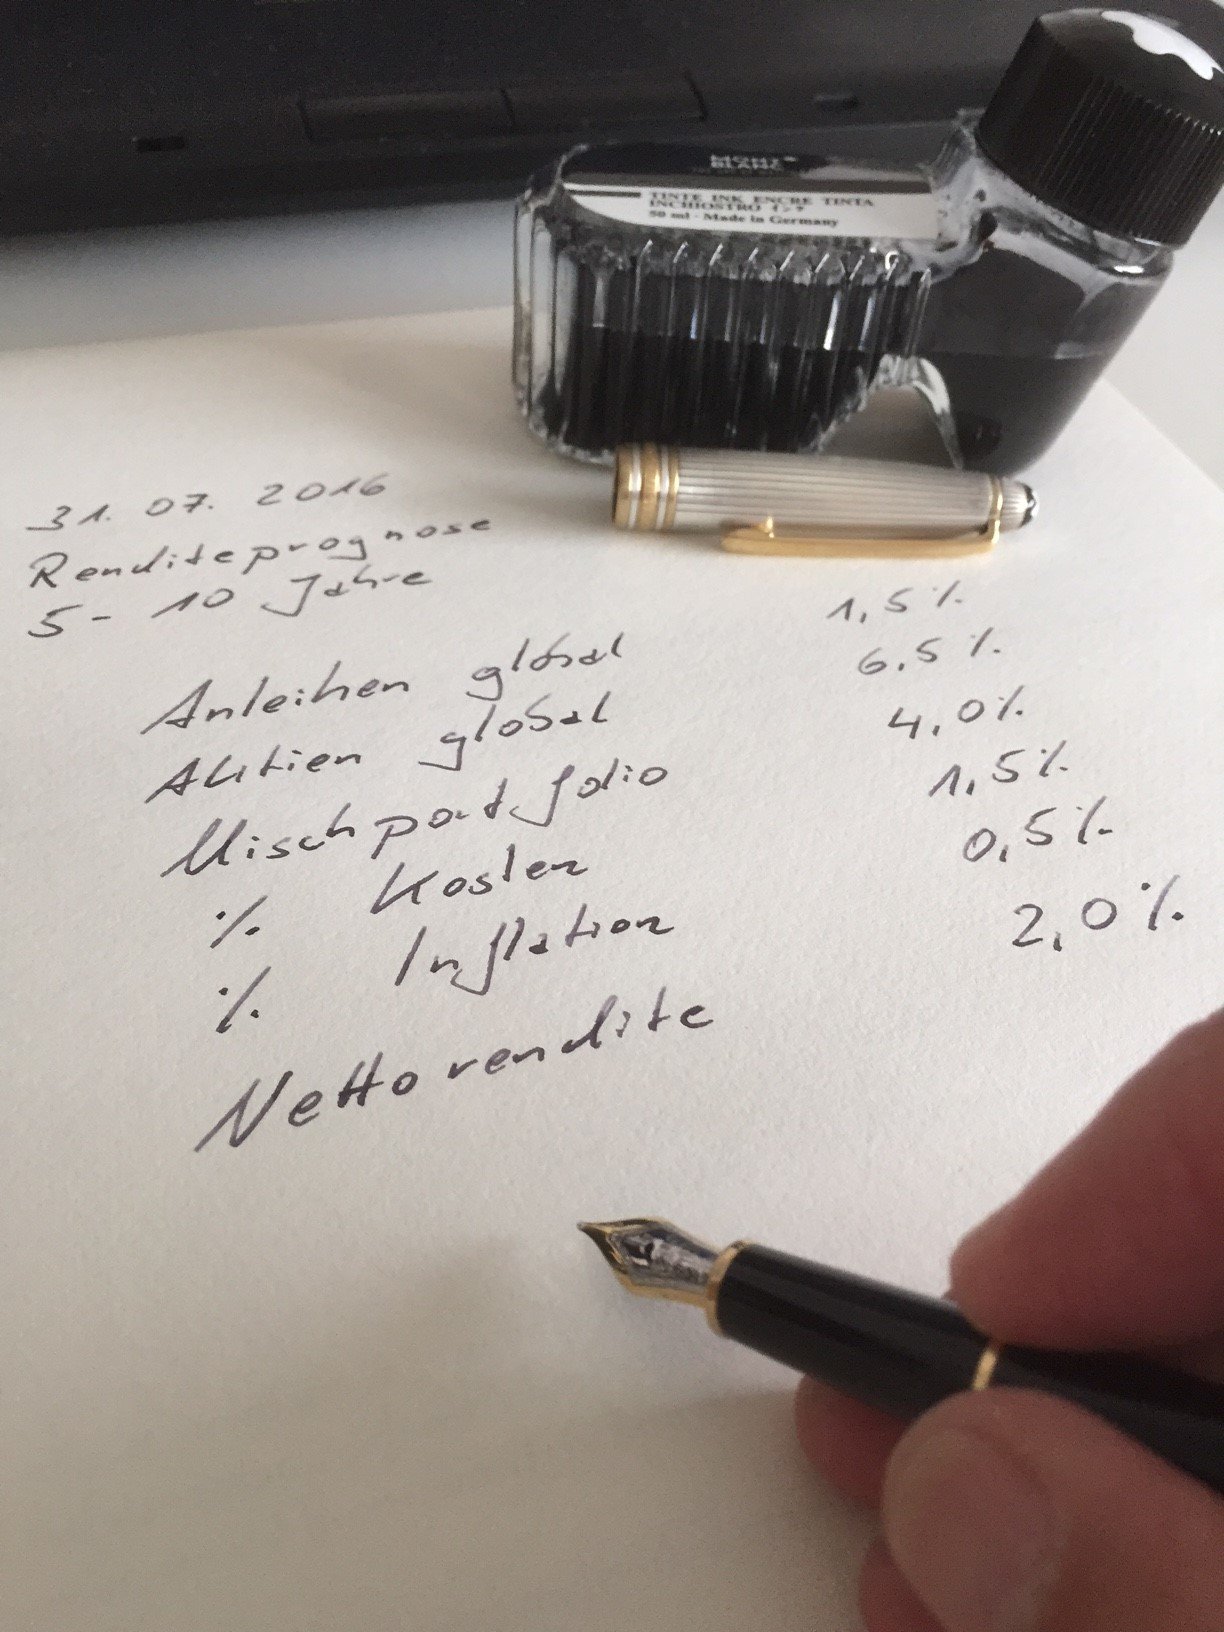 MONT
BLANC
TINTE INK ENCRE TINTA
INCHIOSTRO インク
50 ml - Made in Germany
31. 07. 2016
Renditeprognose
5 - 10 Jahre
Anleihen global 1,5 %
Aktien global 6,5 %
Mischportfolio 4,0 %
% Kosten 1,5 %
% Inflation 0,5 %
Nettorendite 2,0 %